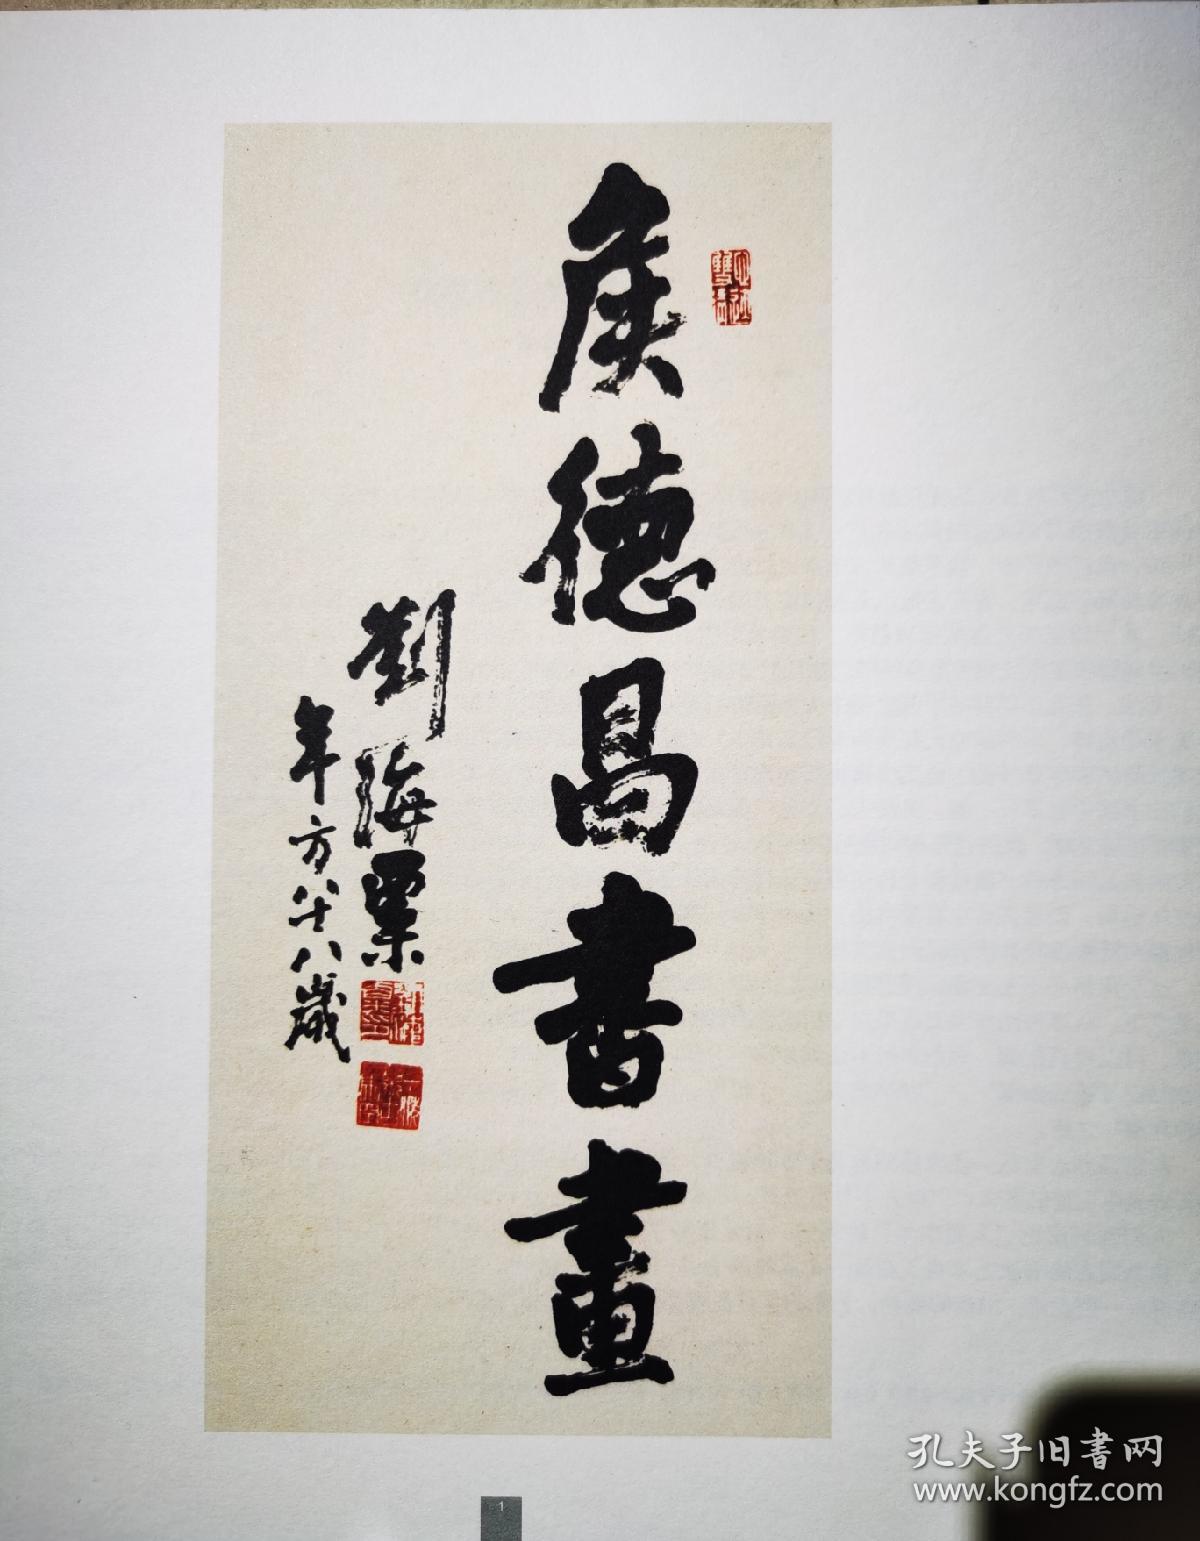 侯德昌書畫
劉海粟
年方八十八歲
1
孔夫子旧書网
www.kongfz.com